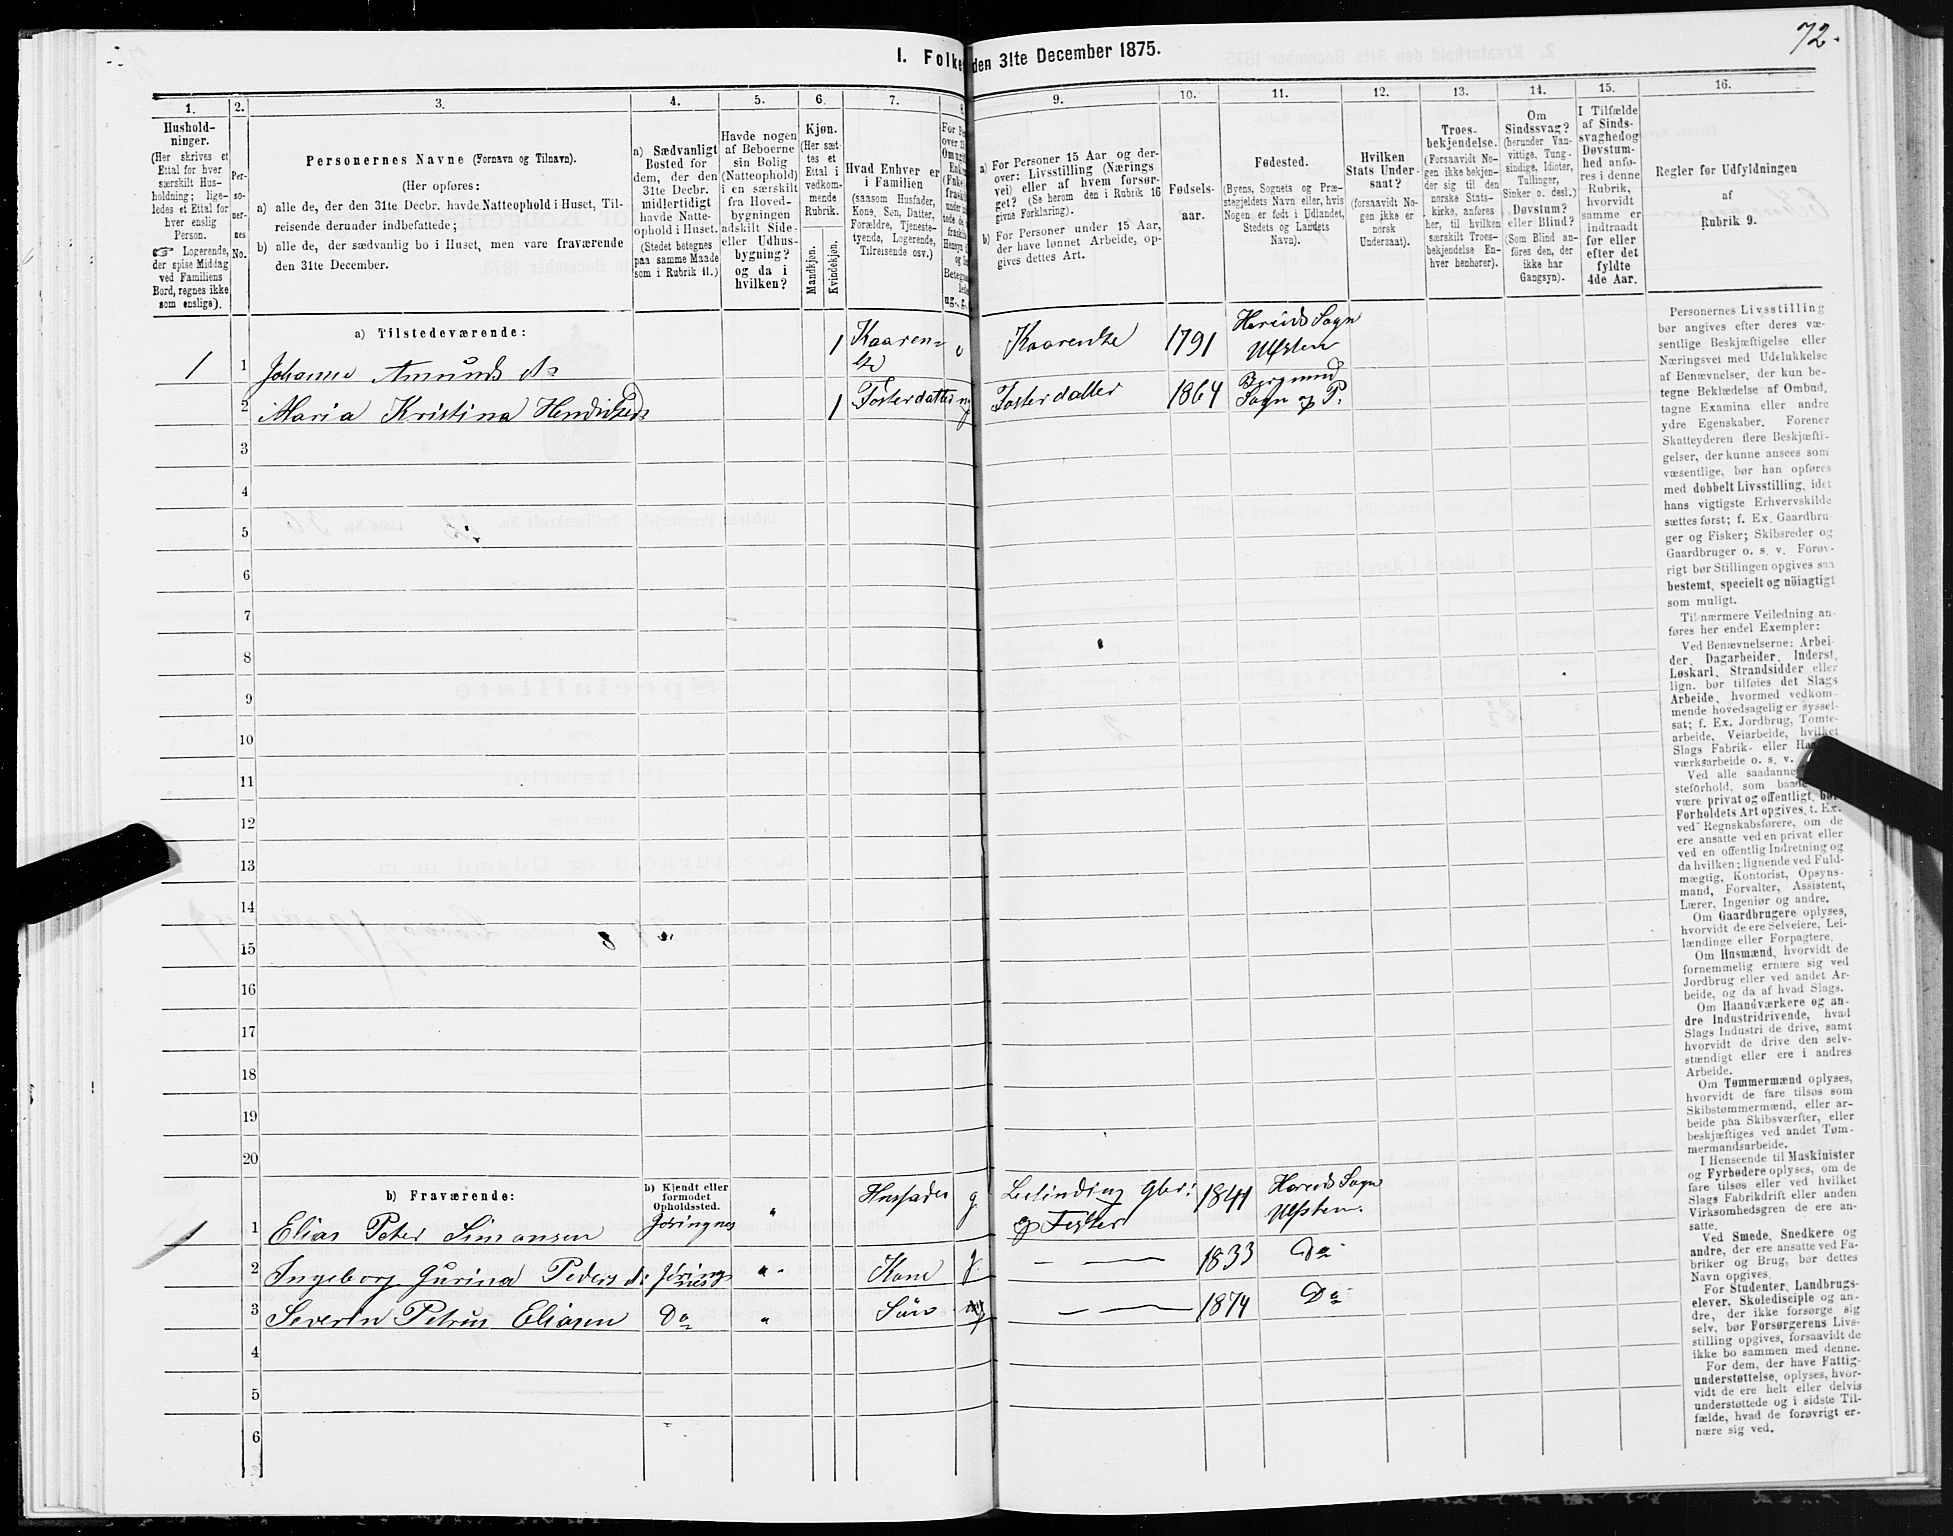 72.
I. Folke den 31te December 1875.
1. 2. 3. 4. 5. 6. 7. 8. 9. 10. 11. 12. 13. 14. 15. 16.
Hushold-
ninger.
(Her skrives et
Ettal for hver
særskilt Hus-
holdning; lige-
ledes et Ettal for
hver enslig
Person.
☞ Logerende,
der spise Middag
ved Familiens
Bord, regnes ikke
som enslige).
Per-
so-
ner-
nes
No.
Personernes Navne (Fornavn og Tilnavn).
(Her opføres:
a) alle de, der den 31te Decbr. havde Natteophold i Huset, Til-
reisende derunder indbefattede;
b) alle de, der sædvanlig bo i Huset, men vare fraværende
den 31te December.
a) Sædvanligt
Bosted for
dem, der den
31te Decbr.
midlertidigt
havde Natte-
ophold i Huset.
(Stedet betegnes
paa samme Maade
som i Rubrik 11.)
Havde nogen
af Beboerne
sin Bolig
(Natteophold)
i en særskilt
fra Hoved-
bygningen
adskilt Side-
eller Udhus-
bygning?
og da i
hvilken?
Kjøn.
(Her sæt-
tes et
Ettal i
vedkom-
mende
Rubrik.
Mandkjøn.
Kvindekjøn.
Hvad Enhver er
i Familien
(saasom Husfader,
Kone, Søn, Datter,
Forældre, Tjeneste-
tyende, Logerende,
Tilreisende osv.)
a) For Personer 15 Aar og der-
over: Livsstilling (Nærings
vei) eller af hvem forsør-
get? (Se herom den i Rubrik 16
givne Forklaring).
b) For Personer under 15 Aar,
der have lønnet Arbeide, op-
gives dettes Art.
Fødsels-
aar.
Fødested.
(Byens, Sognets og Præ-
stegjeldets Navn eller, hvis
Nogen er født i Udlandet,
Stedets og Landets
Navn).
Hvilken
Stats Under-
saat?
(forsaavidt No-
gen ikke er
norsk
Undersaat).
Troes-
bekjendelse.
(Forsaavidt No-
gen ikke bekjen-
der sig til den
norske Stats-
kirke, anføres
her, til hvilken
særskilt Troes-
bekjendelse En-
hver henhører).
Om
Sindssvag?
(herunder Van-
vittige, Tung-
sindige, Idioter,
Tullinger,
Sinker o. desl.)
Døvstum?
eller Blind?
(Som Blind an-
føres den, der
ikke har
Gangsyn).
I Tilfælde
af Sinds-
svaghedog
Døvstum-
hed anfø-
res i denne
Rubrik,
hvorvidt
samme er
indtraadt
før eller
efter det
fyldte
4de Aar.
Regler for Udfyldningen
af
Rubrik 9.
a) Tilstedeværende:
1 1 Johanne Amunds d. 1 Kaaren- Kaarenke 1791 Hareids Sogn
Ulfsten
2 Maria Kristina 1 Fosterdatter ug Fosterdatter 1864 Borgund
Sogn og P.
3
4
5
6
7
8
9
10
11
12
13
14
15
16
17
18
19
20
b) Fraværende:
b) Kjendt eller
formodet
Opholdssted.
1 1 Elias Peter Simonsen " Husfader g Gbr:
og Fisker 1841 Hareids Sogn
Ulfsten.
2 Ingeborg Gurina Peders d. " Kone g — — 1833 Do
3 Severin Petrus Eliasen Do " Søn ug — — 1874 Do
4
5
6
Personernes Livsstilling
bør angives efter deres væ-
sentlige Beskjæftigelse eller
Næringsvei med Udelukkelse
af Benævnelser, der kun be-
tegne Beklædelse af Ombud,
tagne Examina eller andre
ydre Egenskaber. Forener
Skatteyderen flere Beskjæfti-
gelser, der kunne ansees som
væsentlige, bør han opføres
med dobbelt Livsstilling, idet
hans vigtigste Erhvervskilde
sættes først; f. Ex. Gaardbru-
ger og Fisker; Skibsreder og
Gaardbruger o. s. v. Forøv-
rigt bør Stillingen opgives saa
bestemt, specielt og nöiagtigt
som muligt.
Til nærmere Veiledning an-
føres her endel Exempler:
Ved Benævnelserne: Arbei-
der, Dagarbeider, Inderst,
Løskarl, Strandsidder eller
lign. bør tilføies det Slags
Arbeide, hvormed vedkom-
mende hovedsagelig er syssel-
sat; f. Ex. Jordbrug, Tomte-
arbeide, Veiarbeide, hvilket
Slags Fabrik- eller
værksarbeide o. s. v.
Ved alle saadanne
steforhold, som
være privat og offentligt, bør
Forholdets Art opgives, t. Ex.
ved Regnskabsførere, om de
ere ansatte ved en privat eller
ved en offentlig Indretning og
da hvilken; lignende ved Fuld-
mægtig, Kontorist, Opsyns-
mand, Forvalter, Assistent,
Lærer, Ingeniør og andre.
Om Gaardbrugere oplyses,
hvorvidt de ere Selveiere, Lei-
lændinge eller Forpagtere.
Om Husmænd, hvorvidt de
fornemmelig ernære sig ved
Jordbrug eller ved andet Ar-
beide, og da af hvad Slags.
Om Haandværkere og an-
dre Industridrivende, hvad
Slags Industri de drive, samt
hvorvidt de drive den selv-
stændigt eller ere i andres
Arbeide.
Om Tømmermænd oplyses,
hvorvidt de fare tilsøs som
Skibstømmermænd, eller ar-
beide paa Skibsværfter, eller
beskjæftiges ved andet Tøm-
mermandsarbeide.
I Henseende til Maskinister
og Fyrbødere oplyses, om de
fare tilsøs eller ved hvilket
Slags Fabrikdrift eller anden
Virksomhedsgren de ere an-
satte.
Ved Smede, Snedkere og
andre, der ere ansatte ved Fa-
briker og Brug, bør dettes
Navn opgives.
For Studenter, Landbrugs-
elever, Skoledisciple og an-
dre, der ikke forsørge sig
selv, bør Forsørgerens Livs-
stilling opgives, forsaavidt de
ikke bo sammen med denne.
For dem, der have Fattig-
understøttelse, oplyses, hvor-
vidt de ere helt eller delvis
understøttede og i sidste Til-
fælde, hvad de forøvrigt er-
nære sig ved.